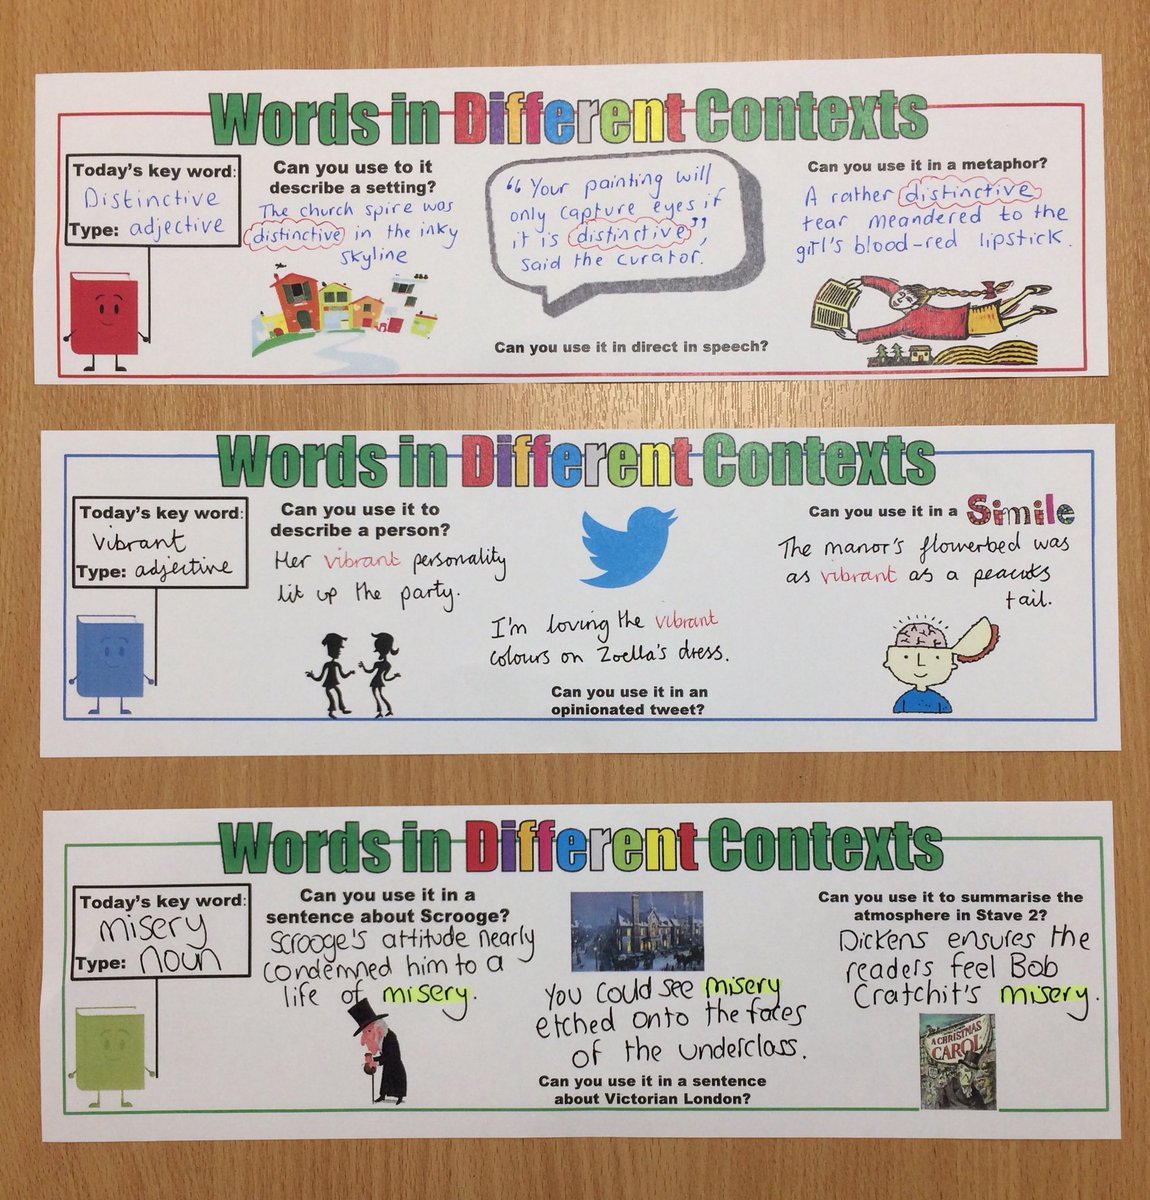 Words in Different Contexts
Today's key word:
Distinctive
Type: adjective
Can you use to it
describe a setting?
The church spire was
distinctive in the inky
skyline
"Your painting will
only capture eyes if
it is distinctive",
said the curator.
Can you use it in direct in speech?
Can you use it in a metaphor?
A rather distinctive
tear meandered to the
girl's blood-red lipstick.
Words in Different Contexts
Today's key word:
Vibrant
Type: adjective
Can you use it to
describe a person?
Her vibrant personality
lit up the party.
I'm loving the vibrant
colours on Zoella's dress.
Can you use it in an
opinionated tweet?
Can you use it in a Simile
The manor's flowerbed was
as vibrant as a peacocks
tail.
Words in Different Contexts
Today's key word:
misery
Type: noun
Can you use it in a
sentence about Scrooge?
Scrooge's attitude nearly
condemned him to a
life of misery.
You could see misery
etched onto the faces
of the underclass.
Can you use it in a sentence
about Victorian London?
Can you use it to summarise the
atmosphere in Stave 2?
Dickens ensures the
readers feel Bob
Cratchit's misery.
A CHRISTMAS
CAROL